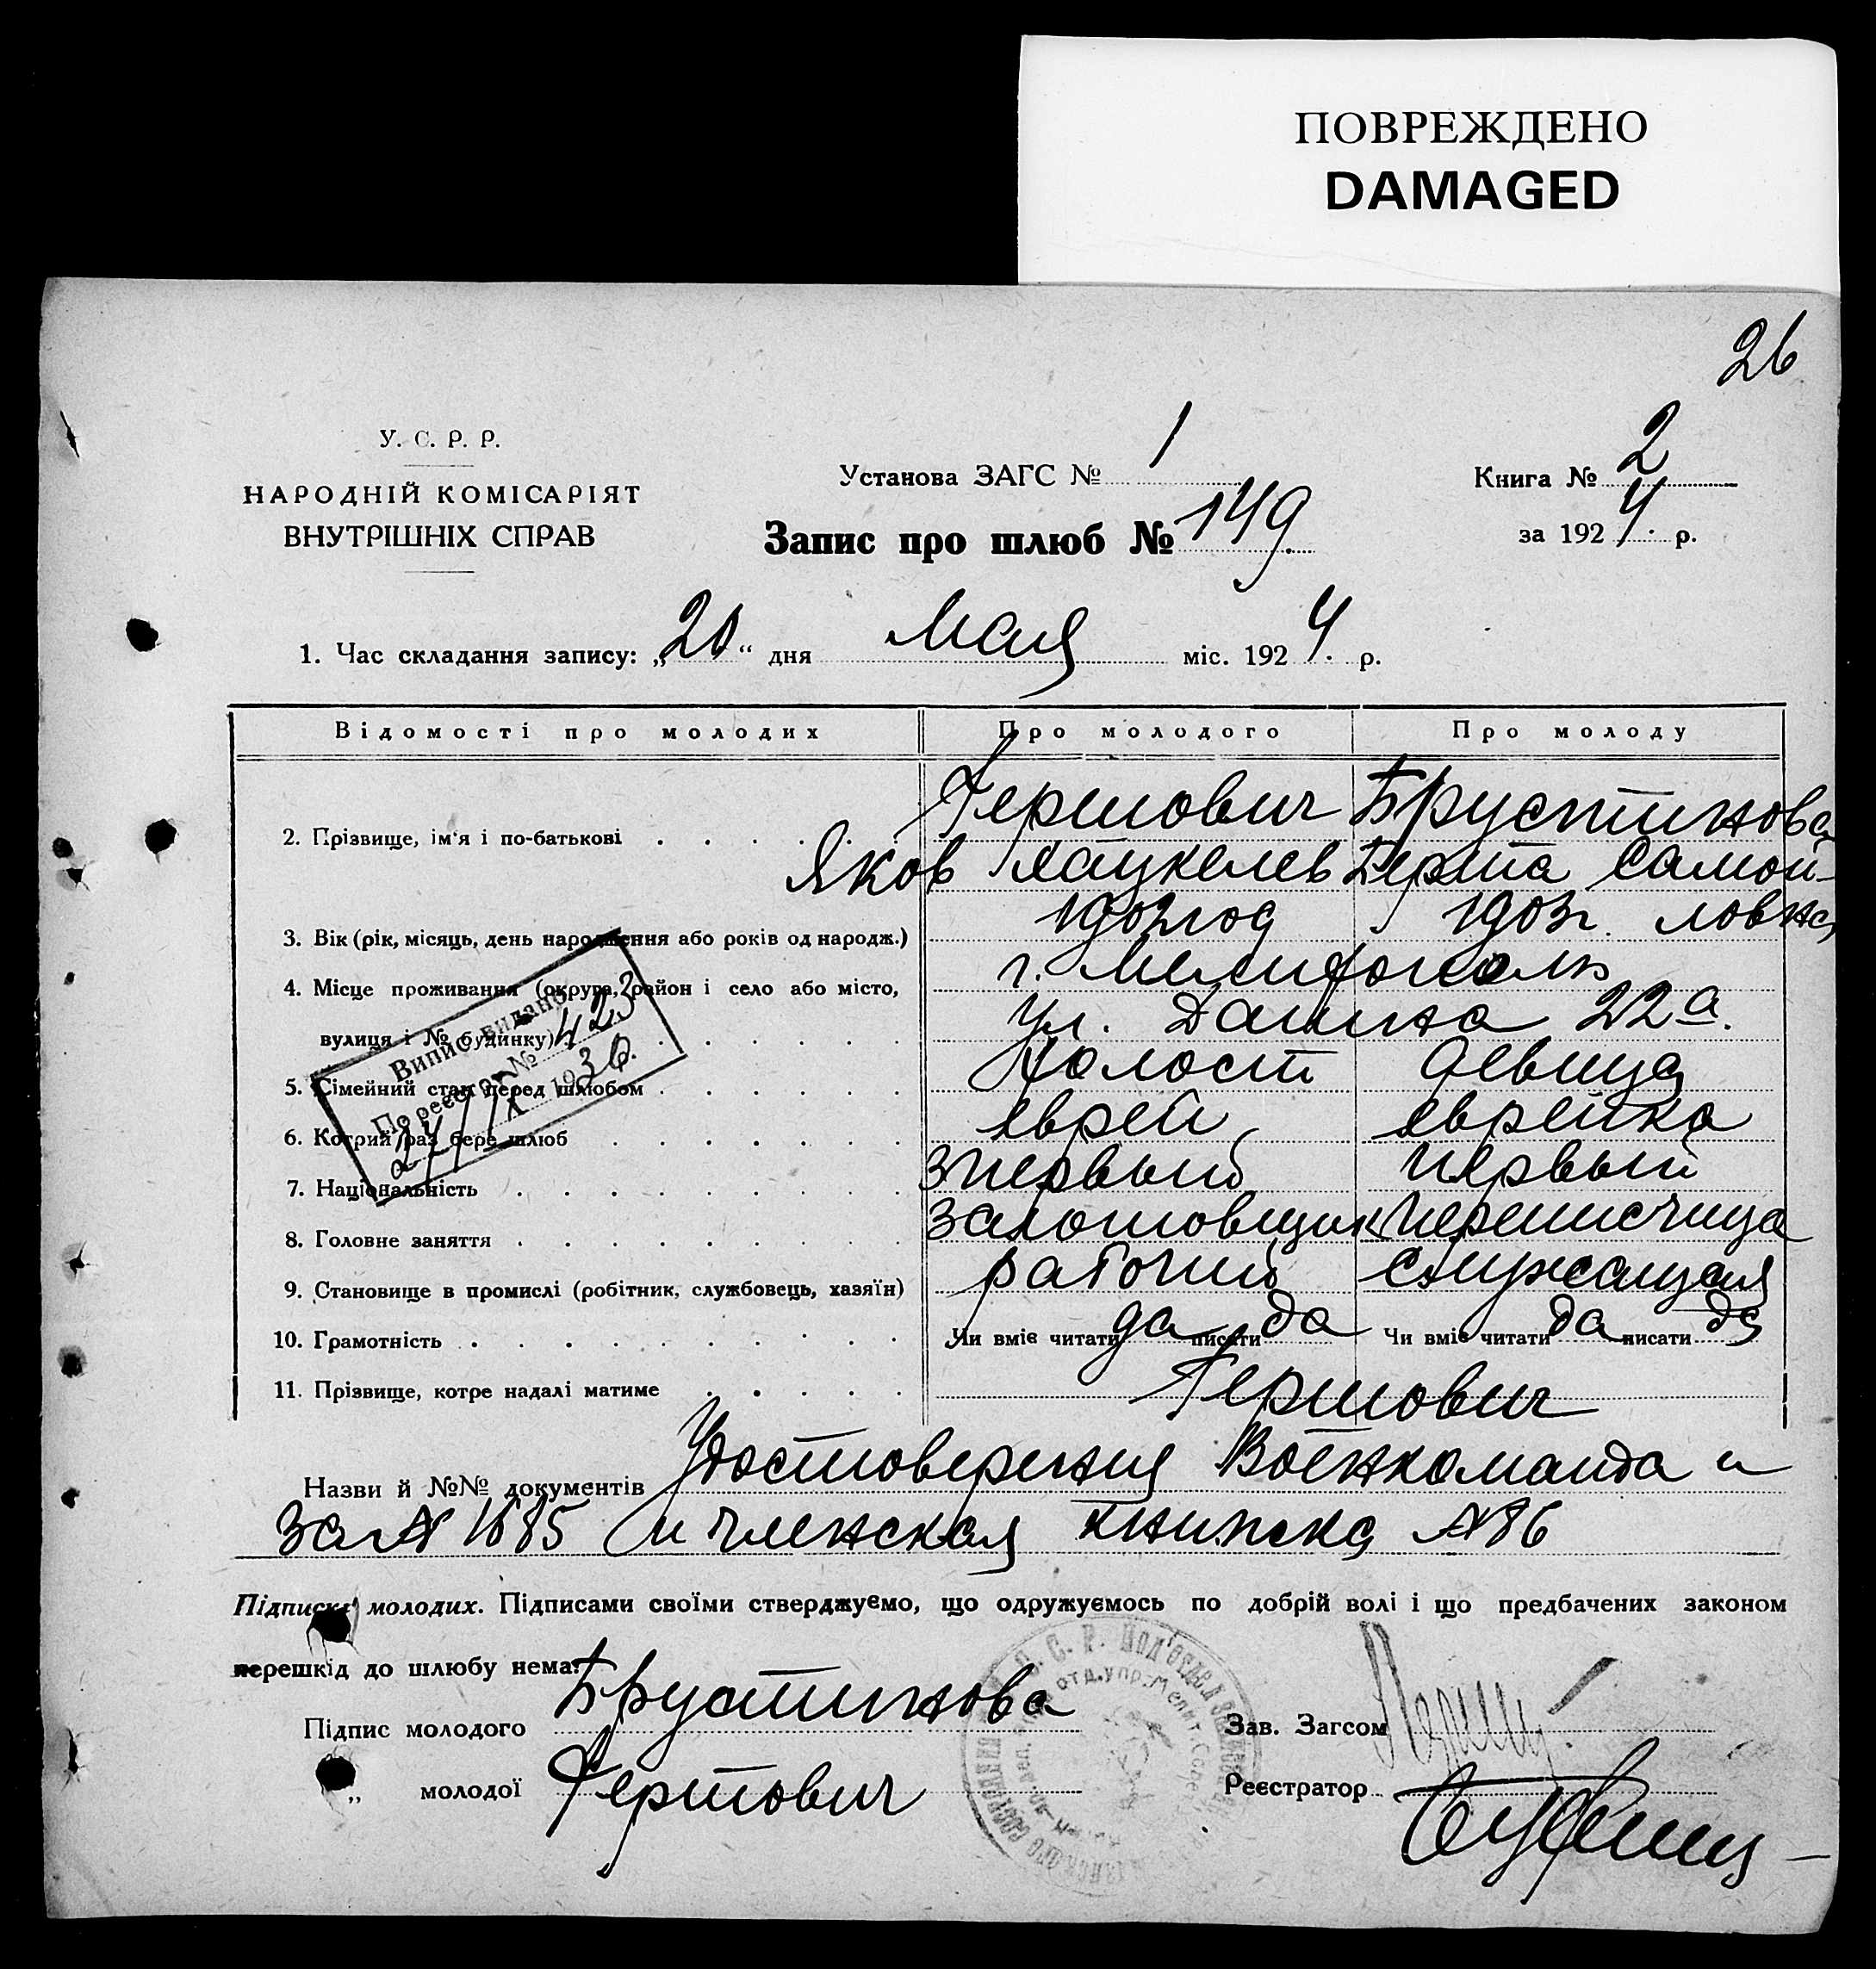 ПОВРЕЖДЕНО
DAMAGED
26
У. С. Р. Р.
НАРОДНІЙ КОМІСАРІЯТ
ВНУТРІШНІХ СПРАВ
Установа ЗАГС № 1
Запис про шлюб № 149
Книга № 2
за 1924 р.
1. Час складання запису: „20“ дня Мая міс. 1924. р.
Відомості про молодих Про молодого Про молоду
2. Прізвище, ім'я і по-батькові Гершович Брустинова
Яков Хацкелев Берта Самой-
3. Вік (рік, місяць, день народження або років од народж.) 1902 год 1903 г. ловна
4. Місце проживання (округа, район і село або місто, г. Мелитополь
вулиця і № будинку) ул. Дашка 22а.
5. Сімейний стан перед шлюбом Холост девица
6. Котрий раз бере шлюб еврей еврейка
7. Національність первый первый
8. Головне заняття заготовщик переписчица
9. Становище в промислі (робітник, службовець, хазяїн) рабочий служащая
10. Грамотність Чи вміє читати да писати да Чи вміє читати да писати да
11. Прізвище, котре надалі матиме Гершович
Випис видано
По реєстру № 423
27/IX 1936.
Назви й №№ документів Удостоверения Военкоманда и
за № 1685 и членская книжка № 86
Підписка молодих. Підписами своїми стверджуємо, що одружуємось по добрій волі і що предбачених законом
перешкід до шлюбу нема.
Підпис молодого Брустинова
„ молодої Гершович
Зав. Загсом
Реєстратор